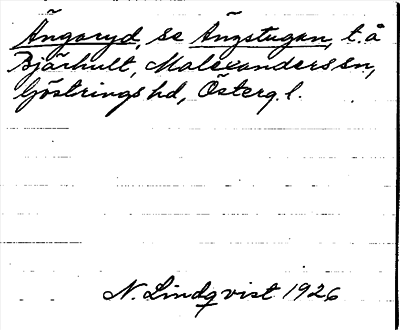 Ängaryd, se Ängstugan, t. å
Bjärhult, Malexanders sn,
Göstrings hd, Österg. l.
N. Lindqvist 1926